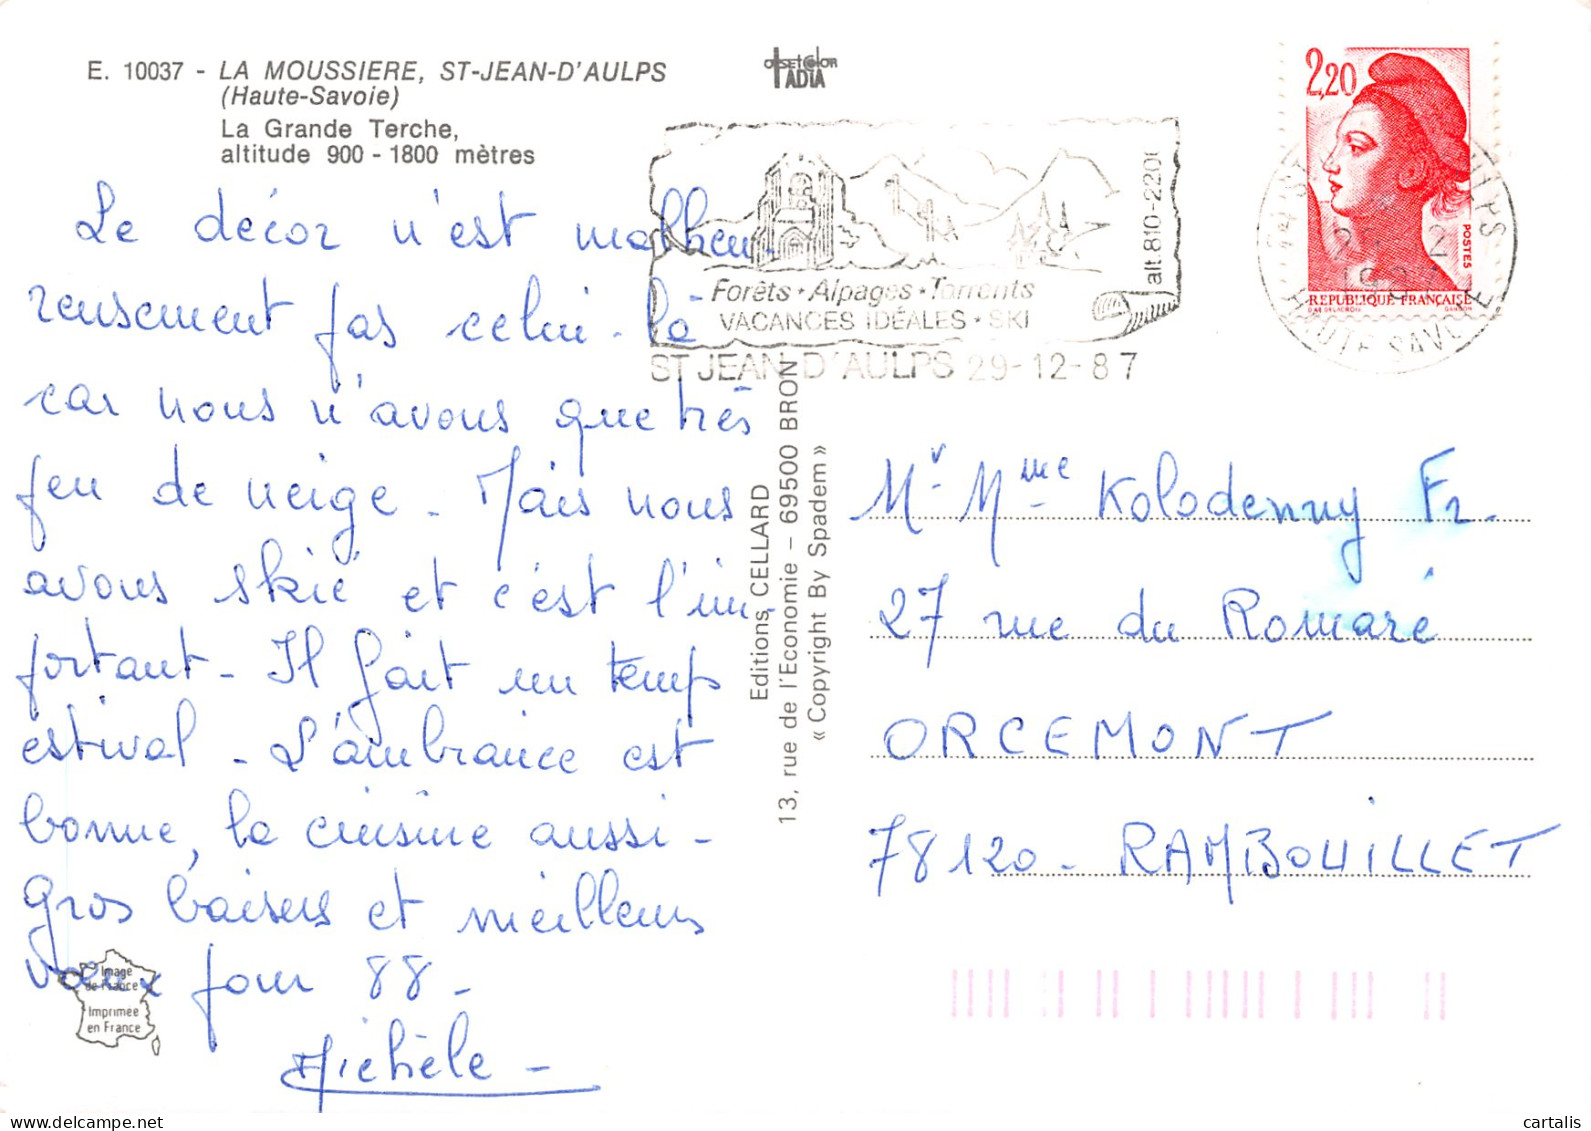 E. 10037 - LA MOUSSIERE, ST-JEAN-D'AULPS
(Haute-Savoie)
La Grande Terche,
altitude 900 - 1800 mètres
OFFSET COLOR
IADIA
Le décor n'est malheu-
reusement pas celui-là
car nous n'avons que très
peu de neige. Mais nous
avons skié et c'est l'im-
portant - Il fait un temps
estival - L'ambiance est
bonne, la cuisine aussi -
Gros baisers et meilleurs
vœux pour 88 -
Michèle -
Image
de France
Imprimée
en France
Editions CELLARD
13, rue de l'Economie - 69500 BRON
« Copyright By Spadem »
alt. 810-2200
Forêts • Alpages • Torrents
VACANCES IDÉALES • SKI
ST JEAN D'AULPS 29-12-87
2,20
POSTES
RÉPUBLIQUE FRANÇAISE
D'AP. DELACROIX GANDON
HAUTE SAVOIE
Mr Mme Kolodenny Fr.
27 rue du Romaré
ORCEMONT
78120 - RAMBOUILLET
cartalis
delcampe.net